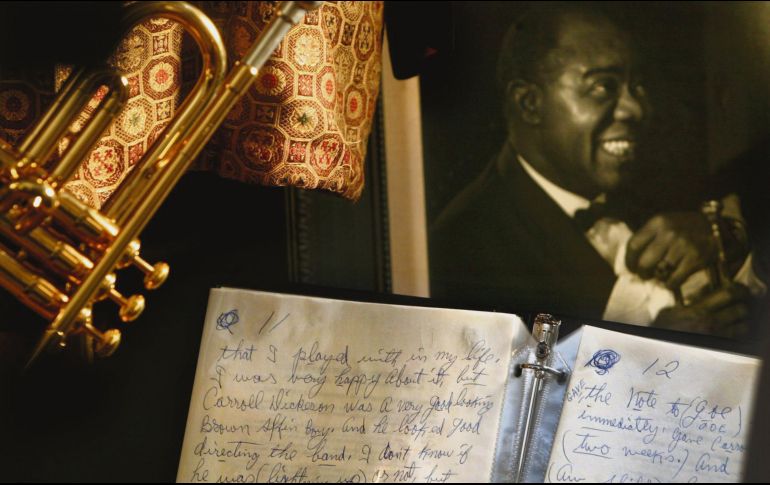 11
that I played with in my life.
I was very happy about it, but
Carroll Dickerson was a very good looking
Brown Skin Boy. and he looked good
directing the band. I don't know if
he was or not, but
12
GAVE
the Note to (Joe)
JOE
immediatly. Gave Carro
(two weeks.) And
(Am